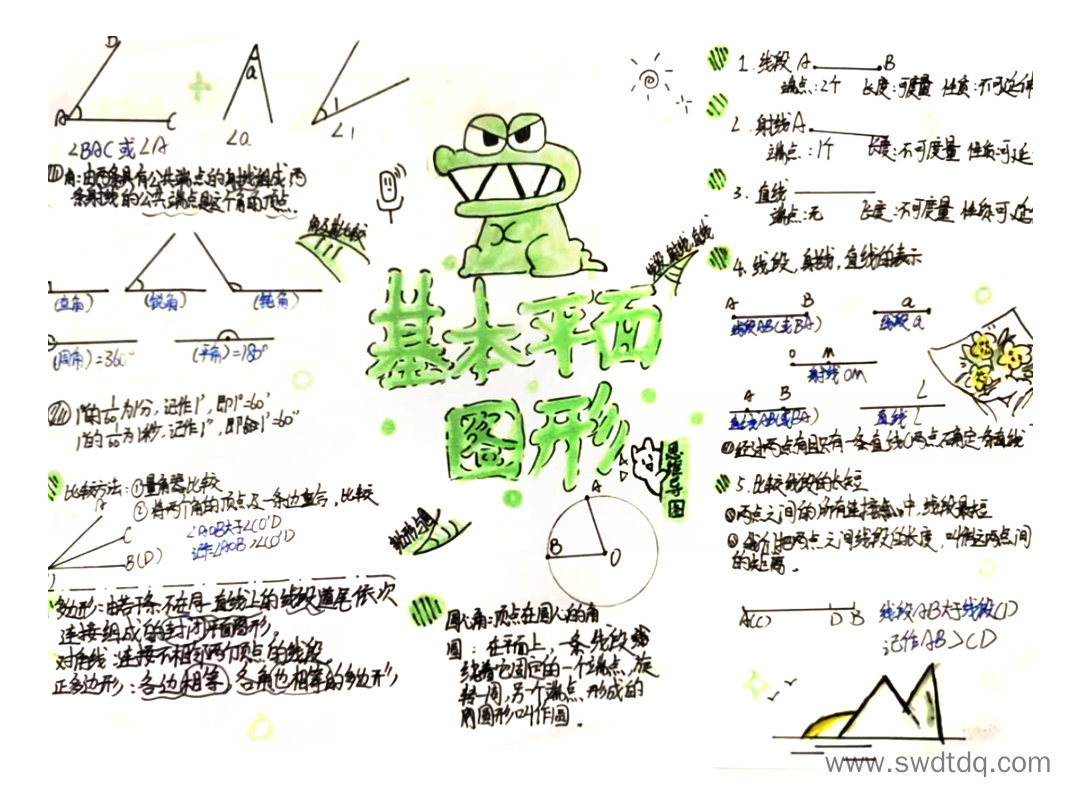 D
A
C
∠BAC 或 ∠A
a
∠a
1
∠1
角:由两条具有公共端点的射线组成,两
条射线的公共端点是这个角的顶点.
(直角)
(锐角)
(钝角)
(周角)=360°
(平角)=180°
1°的1/60为1分,记作1′,即1°=60′
1′的1/60为1秒,记作1″,即1′=60″
比较方法:①量角器比较
②将两个角的顶点及一条边重合,比较
A
C
B(D)
∠AOB大于∠CO'D
记作∠AOB>∠CO'D
多边形:由若干条不在同一直线上的线段首尾依次
连接组成的封闭平面图形.
对角线:连接不相邻两个顶点的线段.
正多边形:各边相等,各角也相等的多边形
角及其比较
线段,射线,直线
基本平面
图形
思维导图
A
B
O
圆心角:顶点在圆心的角
圆:在平面上,一条线段
绕着它固定的一个端点,旋
转一周,另一个端点形成的
图形叫作圆.
1.线段 A B
端点:2个 长度:可度量 性质:不可延伸
2.射线 A
端点:1个 长度:不可度量 性质:可延
3.直线
端点:无 长度:不可度量 性质:可延
4.线段,射线,直线的表示
A B
线段AB(或BA)
a
线段a
O M
射线OM
A B
直线AB(或BA)
L
直线L
①经过两点有且只有一条直线(两点确定一条直线
5.比较线段的长短
①两点之间的所有连接 中,线段最短
②我们把两点之间线段的长度,叫作这两点间
的距离.
A(C) D B
线段AB大于线段CD
记作AB>CD
www.swdtdq.com